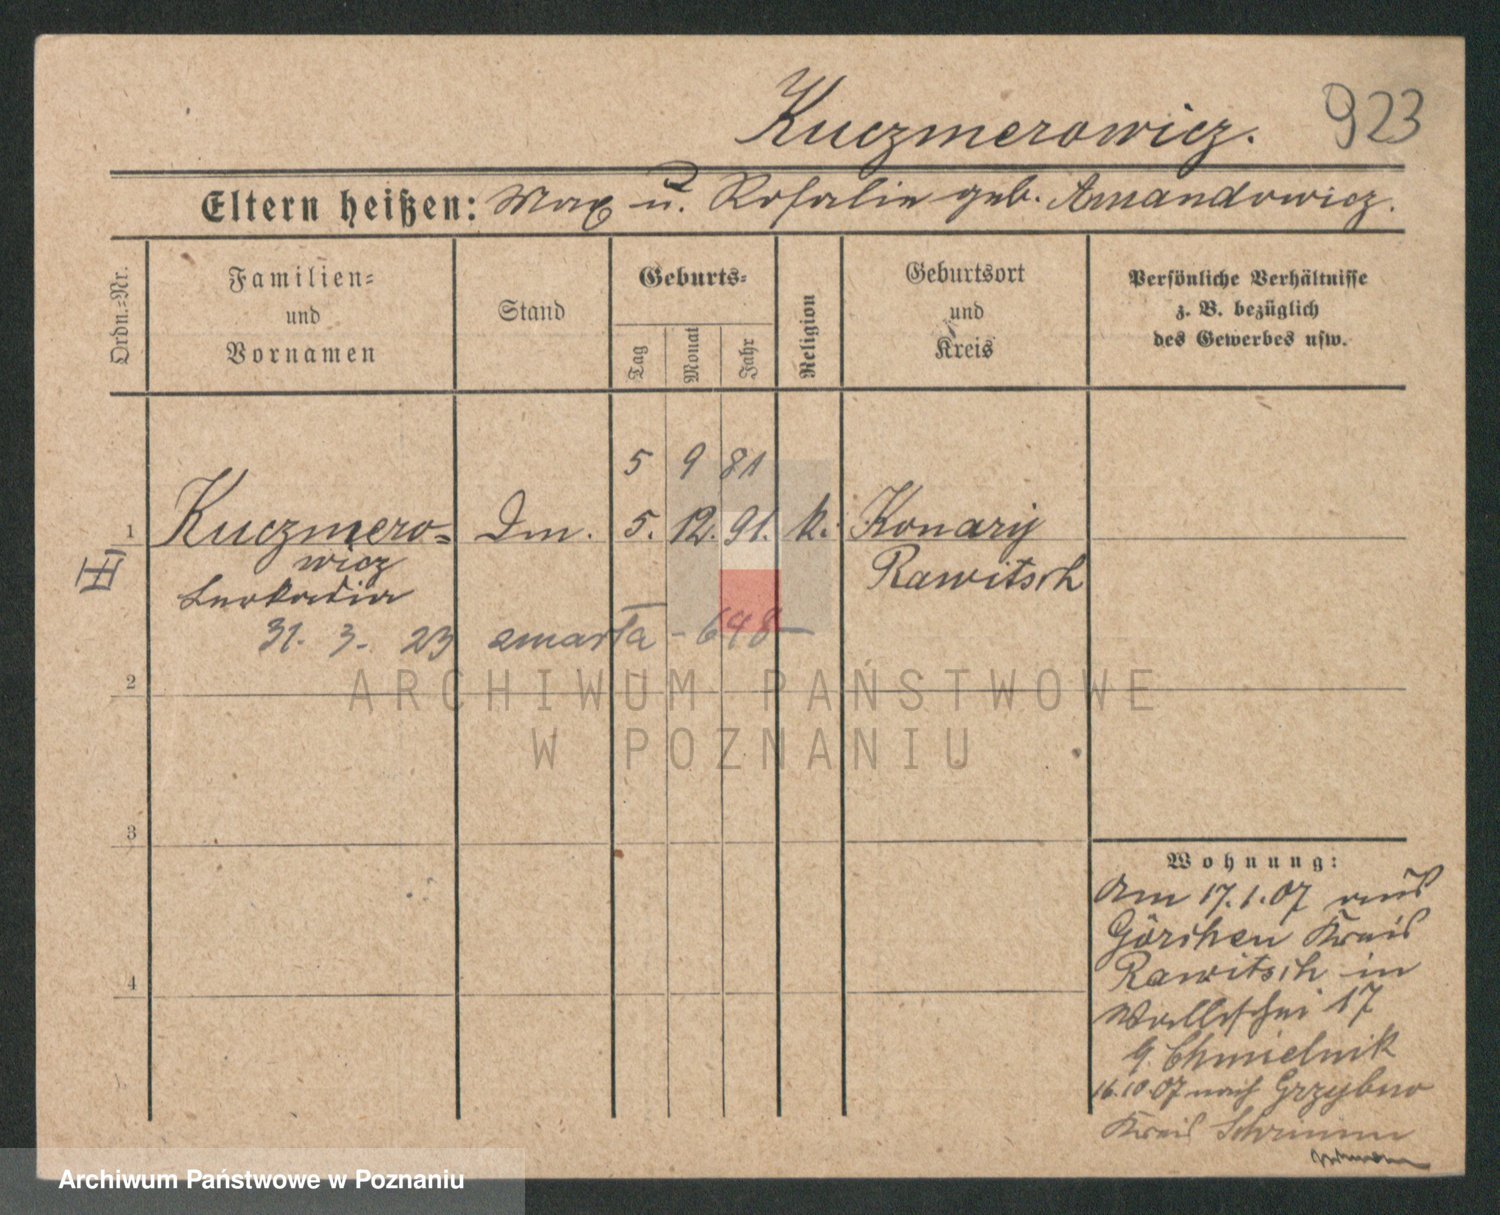 Kuczmerowicz. 923
Eltern heißen: Max u. Rosalie geb. Amandowicz.
Ordn.-Nr.
Familien-
und
Vornamen
Stand
Geburts-
Tag
Monat
Jahr
Religion
Geburtsort
und
Kreis
Persönliche Verhältnisse
z. B. bezüglich
des Gewerbes usw.
5 9 81
1 Kuczmero- Dm. 5. 12. 91. k. Konary
wicz Rawitsch
Leokadia
31. 3. 23 zmarła - 648 -
2
3
4
Wohnung:
Am 17.1.07 aus
Görchen Kreis
Rawitsch in
Wallischei 17
Chmielnik
16.10.07 nach Grzybno
Kreis Schrimm
ARCHIWUM PAŃSTWOWE
W POZNANIU
Archiwum Państwowe w Poznaniu